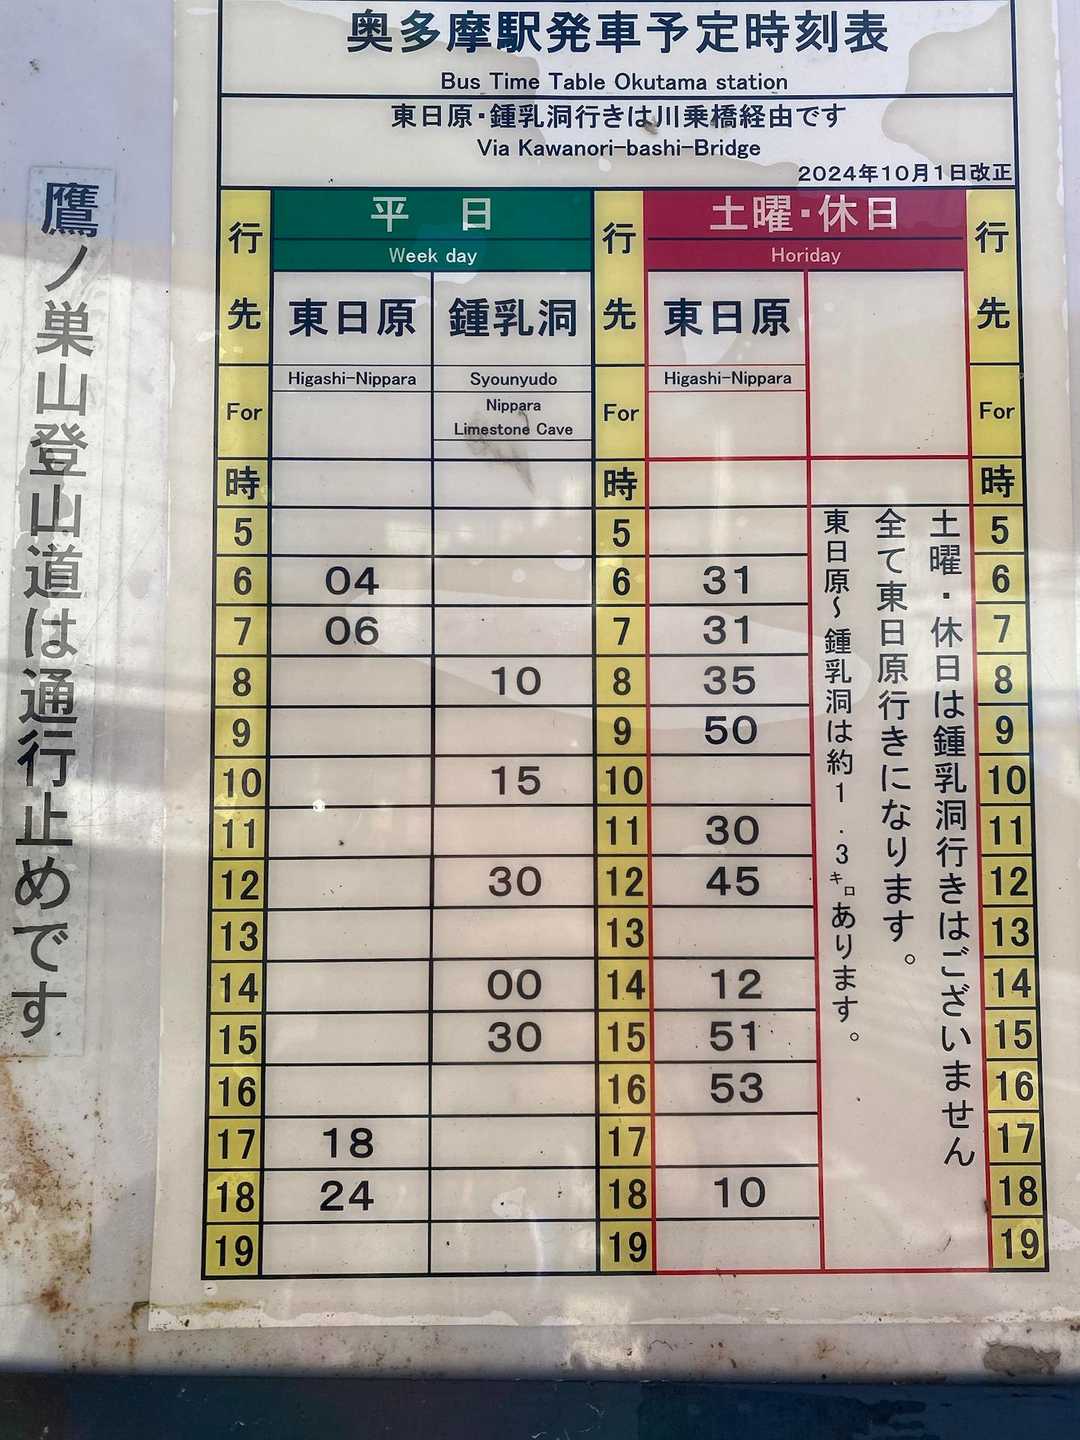 奥多摩駅発車予定時刻表
Bus Time Table Okutama station
東日原・鍾乳洞行きは川乗橋経由です
Via Kawanori-bashi-Bridge
2024年10月1日改正
行先 平日 行先 土曜・休日 行先
Week day Horiday
東日原 鍾乳洞 東日原
Higashi-Nippara Syounyudo Higashi-Nippara
For Nippara For For
Limestone Cave
時 時 時
5 5 5
6 04 6 31 6
7 06 7 31 7
8 10 8 35 8
9 9 50 9
10 15 10 10
11 11 30 11
12 30 12 45 12
13 13 13
14 00 14 12 14
15 30 15 51 15
16 16 53 16
17 18 17 17
18 24 18 10 18
19 19 19
土曜・休日は鍾乳洞行きはございません
全て東日原行きになります。
東日原～鍾乳洞は約1.3キロあります。
鷹ノ巣山登山道は通行止めです